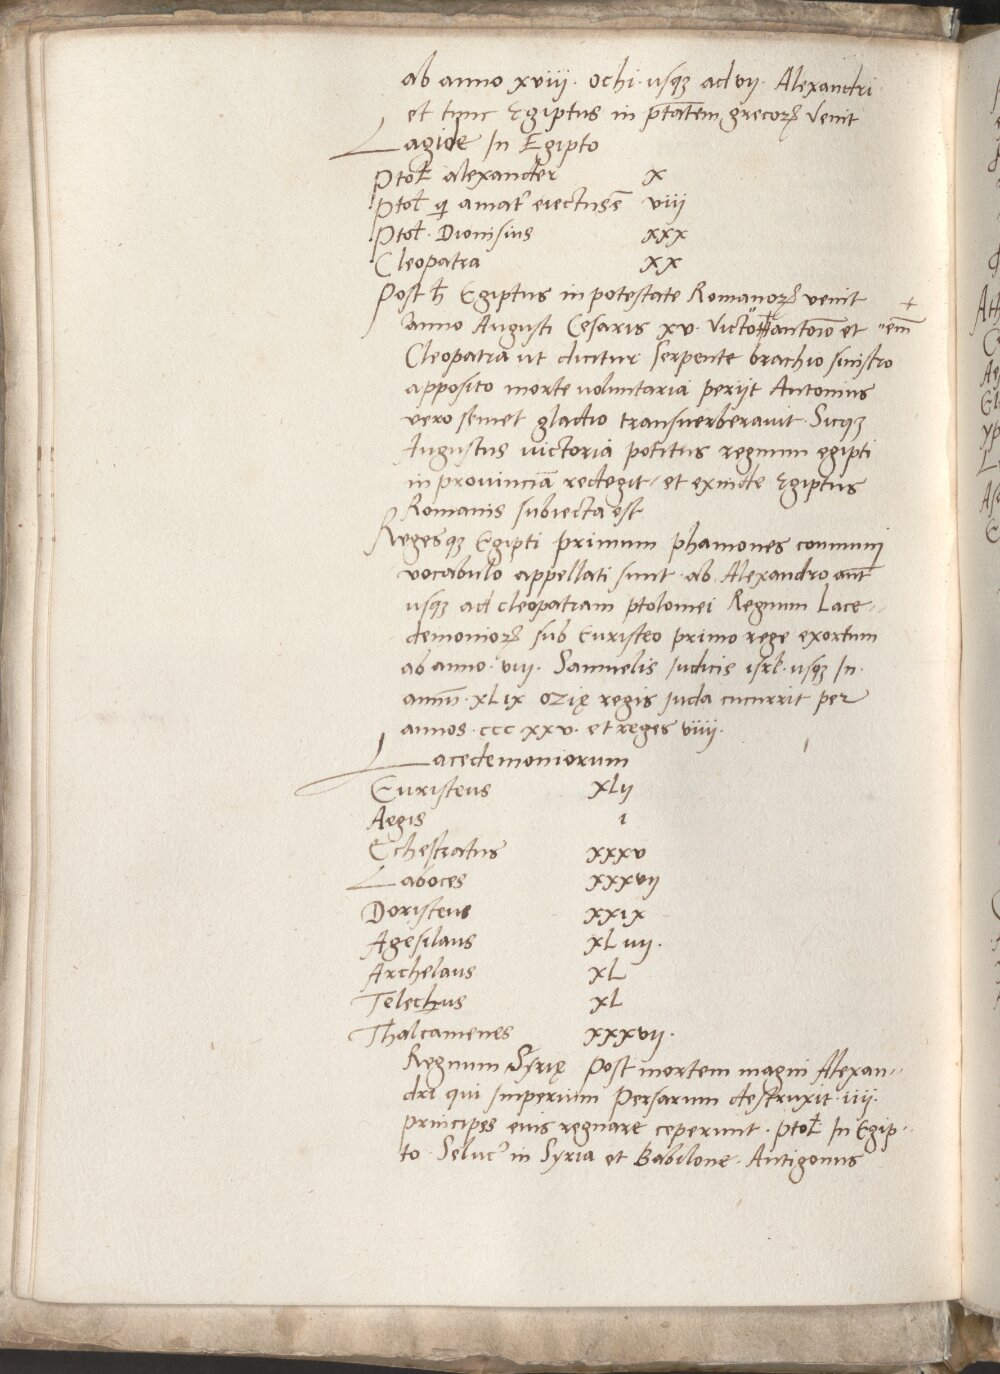 ab anno xviii · ochi · usqꝫ ad vii · Alexandri ·
et tunc Egiptus in ptātem grecorꝝ venit
Lagide In Egipto
Ptol alexander x
Ptol qi amatʳ eiectus ē viii
Ptol · Dionisius xxx
Cleopatra xx
Post h̄ Egiptus in potestate Romanorꝝ venit
anno Augusti Cesaris xv · victo antonio et
Cleopatra ut dicitur serpente brachio sinistro
apposito morte voluntaria periit Antonius
vero semet gladio transverberavit · Sicqꝫ
Augustus victoria potitus regnum egipti
in provinciā redegit / et exinde Egiptus
Romanis subiecta est
Regesqꝫ Egipti primum phamones communi
vocabulo appellati sunt · ab Alexandro aūt
usqꝫ ad cleopatram ptolomei Regnum Lace-
demoniorꝝ sub Euristeo primo rege exortum
ab anno · viii · Samuelis Judicis isrl · usqꝫ In ·
annū · xlix ozię regis Juda cucurrit per
annos · cccxxv · et reges viiii ·
Lacedemoniorum
Euristeus xlii
Aegis i
Echestratus xxxv
Laboces xxxvii
Doristeus xxix
Agesilaus xliiii ·
Archelaus xl
Telechus xl
Thalcamenes xxxvii ·
Regnum Syrię Post mortem magni Alexan-
dri qui Imperium Persarum destruxit · iiii ·
principes eius regnare ceperunt · Ptol In Egip-
to · Seluc' in Syria et Babilone · Antigonus